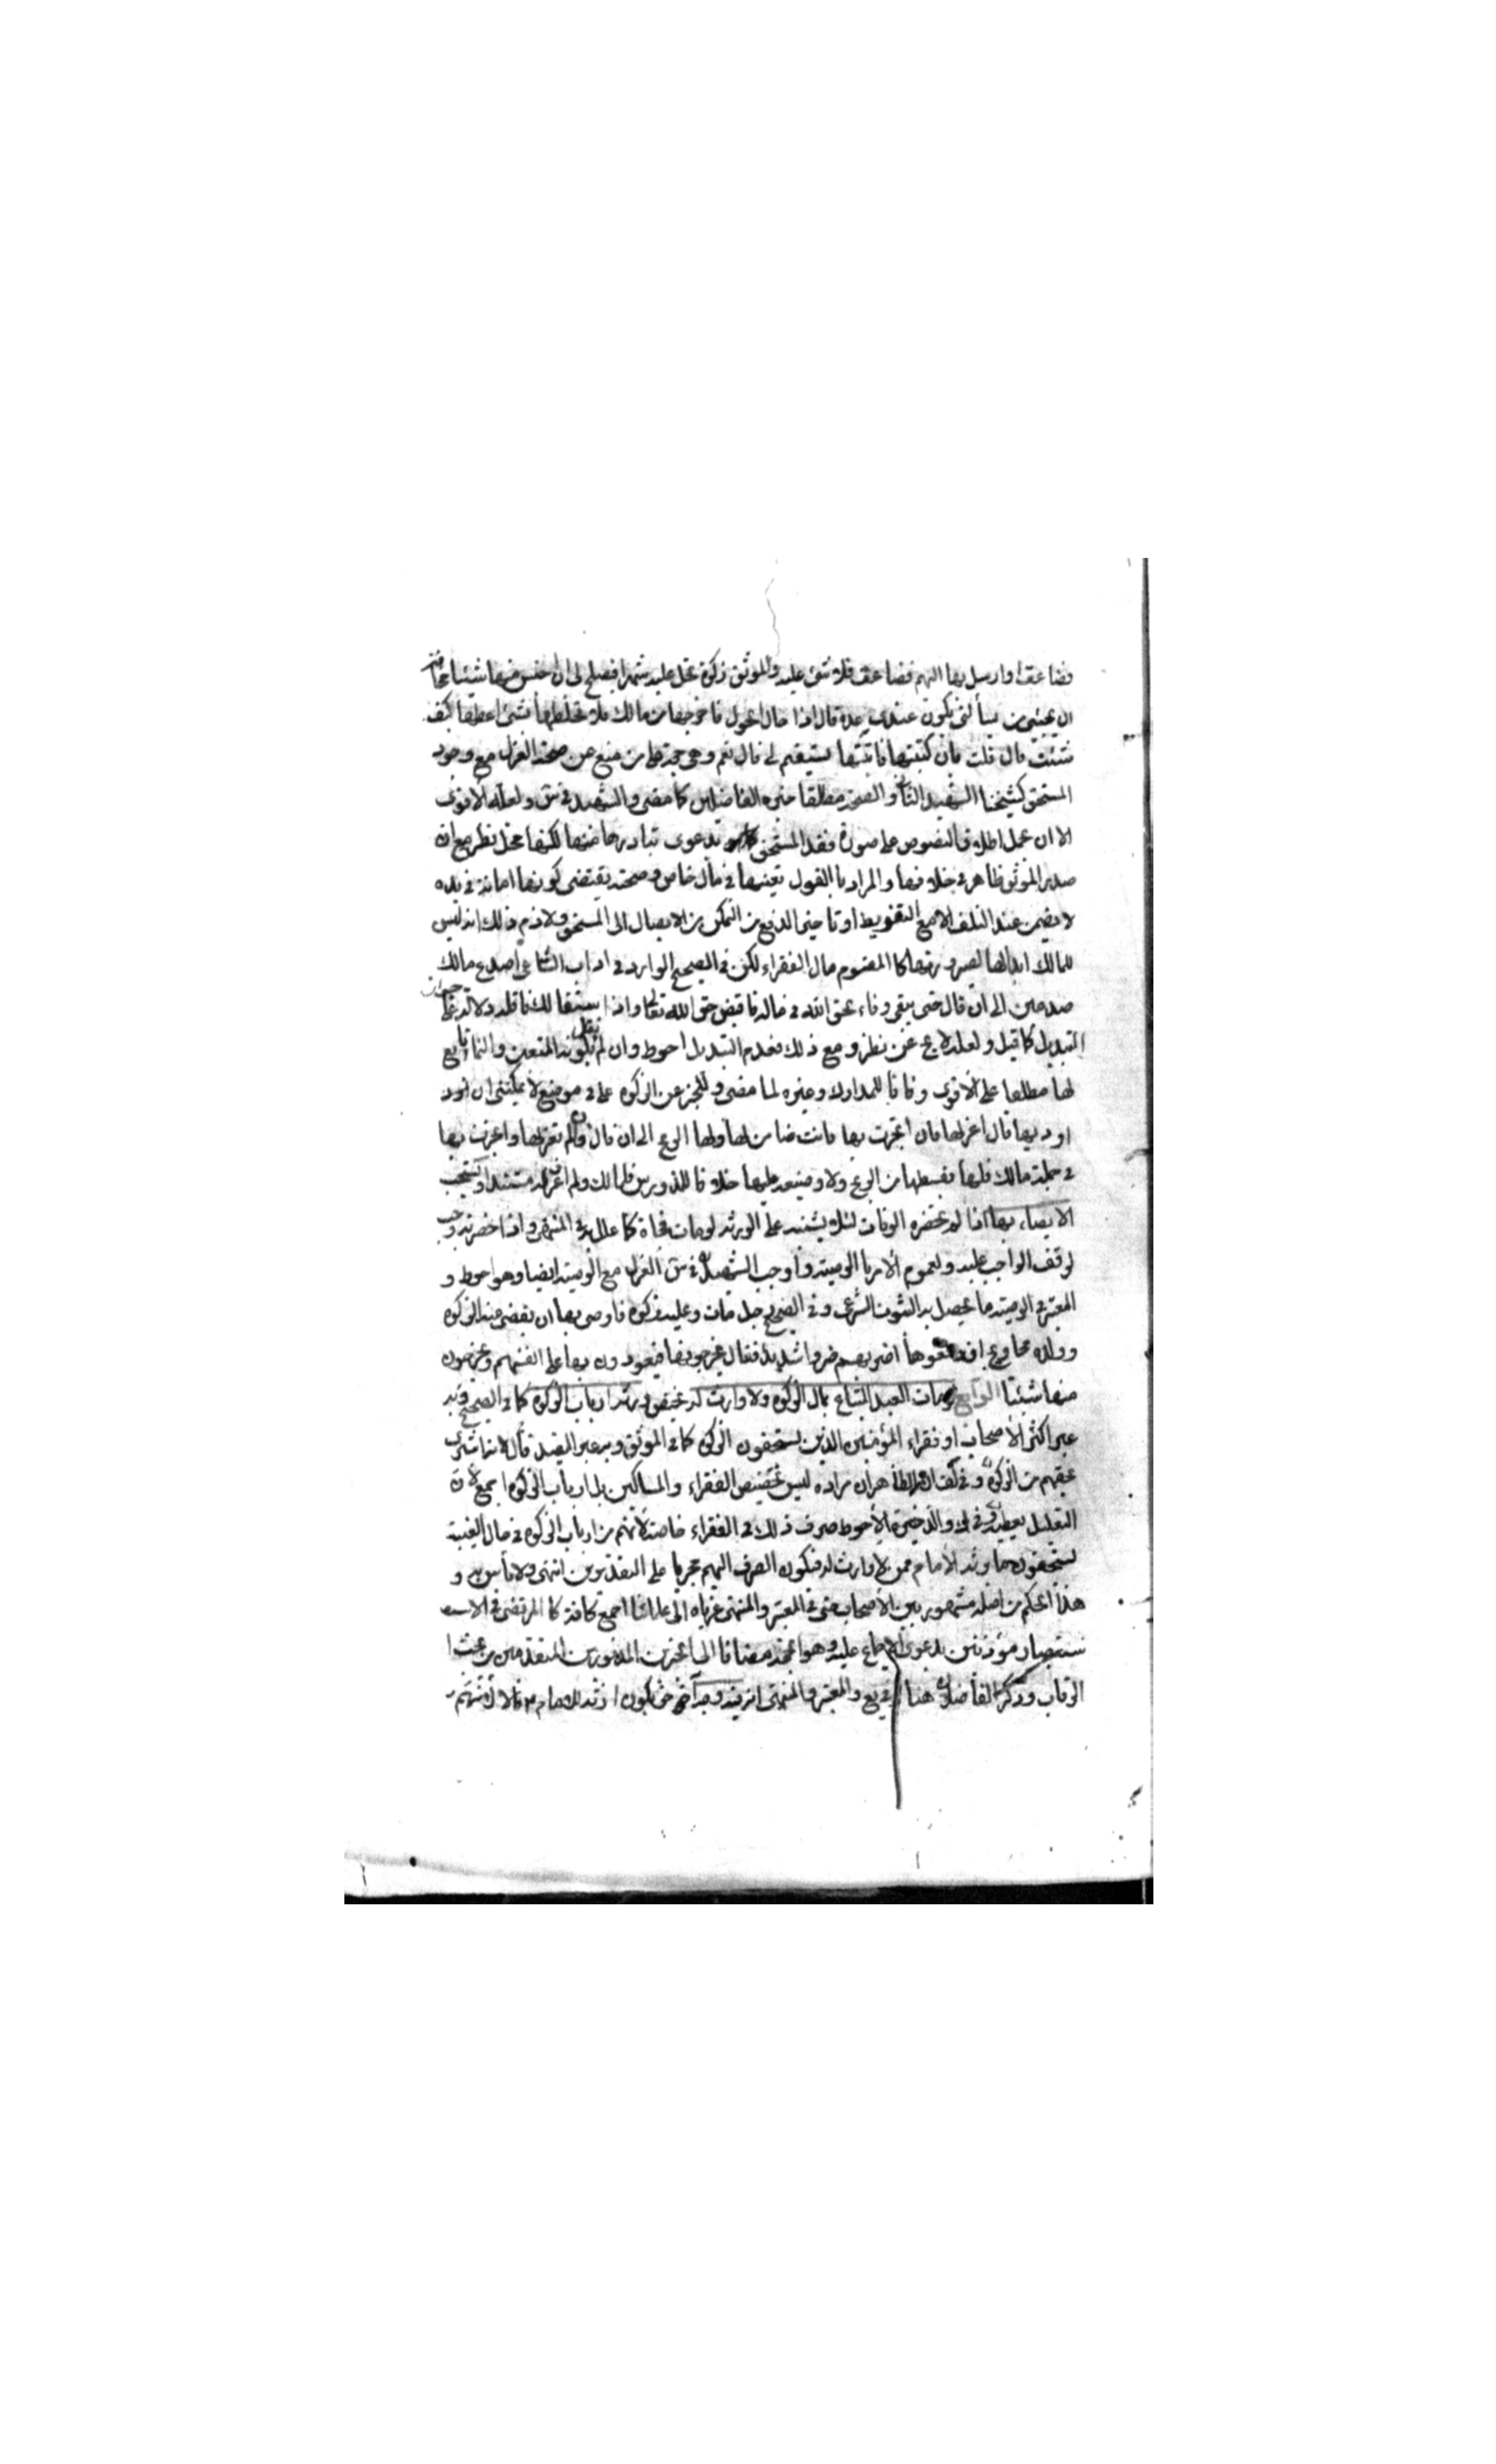 فضاعت او ارسل بها اليهم فضاعت فلا شئ عليه وللموثق زكوة تحل علىّ شهرا فيصلح لى ان احبس منها شيئا مخافة
ان يجيئنى من يسألنى يكون عندى عدة قال اذا حال الحول فاخرجها من مالك ولا تخلطها بشئ اعطها كيف
شئت قال قلت فان كتبتها واثبتها يستقيم لى قال نعم وهى حجة على من منع عن صحة العزل مع وجود
المستحق كشيخنا الشهيد الثانى والصحة مطلقا خيرة الفاضلين كما مضى والشهيد فى س ولعله الاقوى
الا ان يحمل اطلاق النصوص على صورة فقد المستحق بدعوى تبادرها منها لكنها محل نظر مع ان
صدر الموثق ظاهر فى خلافها والمراد بالعزل تعيينها فى مال خاص وصحته يقتضى كونها امانة فى يده
لا يضمن عند التلف الا مع التفريط او تاخير الدفع مع التمكن من الايصال الى المستحق ولازم ذلك انه ليس
للمالك ابدالها لصيرورتها كالمقسوم مال الفقراء لكن فى الصحيح الوارد فى اداب الساعى اصدع مالك
صدعين الى ان قال حتى يبقى وفاء لحق الله فى ماله فاقبض حق الله تعالى واذا استقالك فاقله دلالة على جواز
التبديل كما قيل ولعله لا يخ عن نظر ومع ذلك فعدم التبديل احوط وان لم نقل بكونه المتعين والنماء تابع
لها مطلقا على الاقوى وفاقا للمدارك وغيره لما مضى وللخبر عن الزكوة على فى موضع لا يمكننى ان اود
اوديها قال اعزلها فان اتجرت بها فانت ضامن لها ولها الربح الى ان قال وان لم تعزلها واتجرت بها
فى جملة مالك فلها بقسطها من الربح ولا وضيعة عليها خلافا للدروس فللمالك ولم اعرف له مستندا ويستحب
الايصاء بها اذا لم تحضره الوفات لئلا يشتبه على الورثة لو مات فجاة كما علل به فى المنتهى واذا حضرته وجب
لتوقف الواجب عليه ولعموم الامر بالوصية واوجب الشهيد فى س العزل مع الوصية ايضا وهو احوط و
المعتبر فى الوصية ما يحصل به الثبوت الشرعى وفى الصحيح رجل مات وعليه زكوة فاوصى بها ان يقضى عنه الزكوة
وولده محاويج ان دفعوها اضر بهم ضررا شديدا فقال يخرجونها فيعودون بها على انفسهم ويخرجون
منها شيئا الرابع لو مات العبد المبتاع بمال الزكوة ولا وارث له ورثه ارباب الزكوة كما فى الصحيح وبه
عبر اكثر الاصحاب او فقراء المؤمنين الذين يستحقون الزكوة كما فى الموثق وبه عبر المفيد قال لانه اشترى
بحقهم من الزكوة وفى الظاهر ان مراده ليس تخصيص الفقراء والمساكين بل ارباب الزكوة اجمع لان
التعليل يعطيه وفى ك والذخيرة الاحوط صرف ذلك فى الفقراء خاصة لانهم من ارباب الزكوة فى حال الغيبة
يستحقون ما يرثه الامام ممن لا وارث له فيكون الصرف اليهم مجزيا على التقديرين انتهى ولا باس به و
هذا الحكم من اصله مشهور بين الاصحاب حتى فى المعتبر والمنتهى عزياه الى علمائنا اجمع كافة كالمرتضى فى الا
نتصار مؤذنين بدعوى الاجماع عليه وهو الحجة مضافا الى الخبرين المذكورين المتقدمين فى بحث ا
الرقاب وذكر الفاضلان هنا فى يع والمعتبر والمنتهى ان فيه وجها اخر حتى يكون ارثه للامام